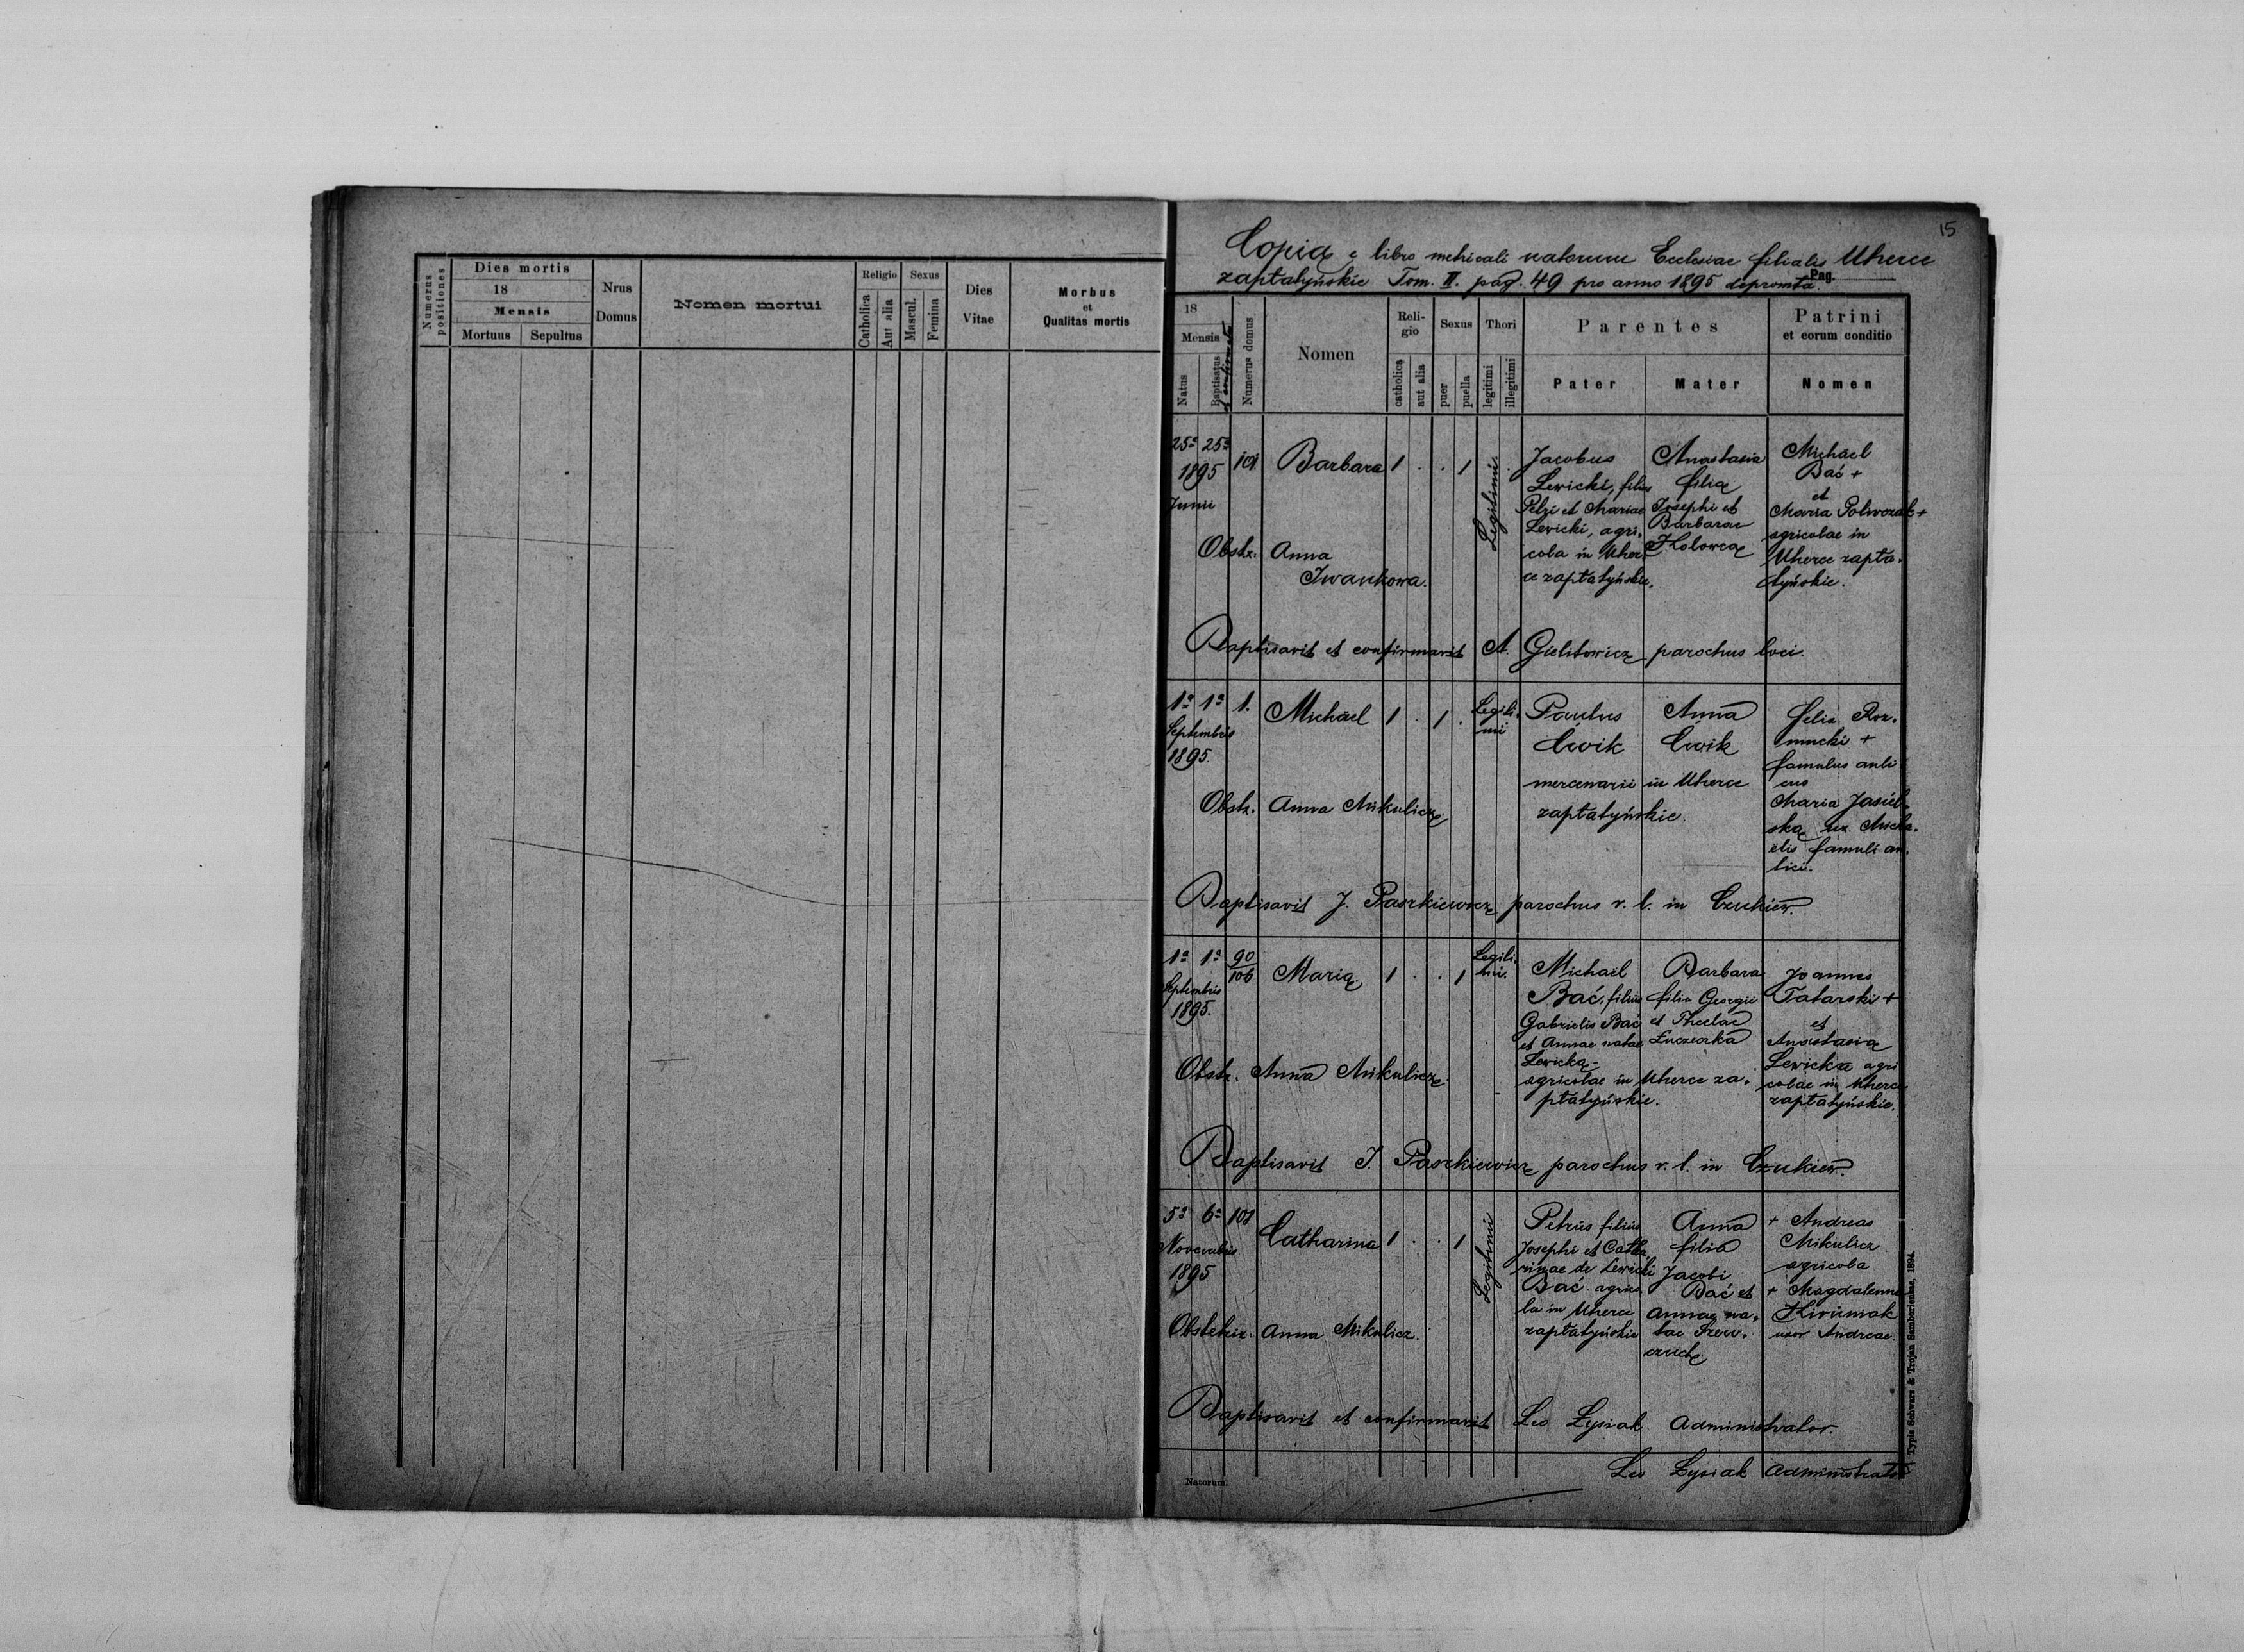 Numerus positiones
Dies mortis
18
Mensis
Mortuus Sepultus
Nrus Domus
Nomen mortui
Religio
Catholica
Aut alia
Sexus
Mascul.
Femina
Dies Vitae
Morbus
et
Qualitas mortis
15
Copia e libro metricali natorum Ecclesiae filialis Uherce
zapłatyńskie Tom. II. pag. 49 pro anno 1895 deprompta.
Pag.
18
Mensis
Natus
Baptisatus et confirmatus
Numerus domus
Nomen
Religio
catholica
aut alia
Sexus
puer
puella
Thori
legitimi
illegitimi
Parentes
Pater
Mater
Patrini
et eorum conditio
Nomen
25a 25a
1895
Junii
101
Barbara
1 . . 1
Legitimi
Jacobus
Lewicki, filius
Petri et Mariae
Lewicki, agri-
cola in Uher-
ce zapłatyńskie.
Anastasia
filia
Josephi et
Barbarae
Michael
Bać +
et
Maria
agricolae in
Uherce zapła-
tyńskie.
Obstr. Anna
Iwankowa.
Baptisavit et confirmavit A. Gielitowicz parochus loci.
1a 1a 1.
Septembris
1895.
Michael
1 . 1 .
Legiti-
mi
Paulus
Ćwik
Anna
Ćwik
mercenarii in Uherce
zapłatyńskie.
Felix Roz-
mucki +
famulus auli
cus
Maria Jasiel-
ska ux. Micha-
elis famuli au-
lici.
Obstr. Anna Mikulicz
Baptisavit J. Paszkiewicz parochus r. l. in Czukiew.
1a 1a 90
106
Septembris
1895.
Maria
1 . . 1
Legiti-
mi.
Michael
Bać, filius
Gabrielis Bać
et Annae natae
Lewicka
agricolae in Uherce za-
płatyńskie.
Barbara
filia Georgii
et Theclae
Łuczeczka
Joannes
Tatarski +
et
Anastasia
Lewicka agri
colae in Uherce
zapłatyńskie.
Obstr. Anna Mikulicz
Baptisavit J. Paszkiewicz parochus r. l. in Czukiew.
5a 6a 101
Novembris
1895
Catharina
1 . . 1
Legitimi
Petrus filius
Josephi et Catha-
rinae de Lewicki
Bać agrico-
la in Uherce
zapłatyńskie
Anna
filia
Jacobi
Bać et
Annae na-
tae Szew-
czuch
+ Andreas
Mikulicz
agricola
+ Magdalenna
uxor Andreae.
Obstetrix. Anna Mikulicz.
Baptisavit et confirmavit Leo Łysiak Administrator.
Leo Łysiak Administrator
Natorum.
Typis Schwarz & Trojan Samboriense, 1894.